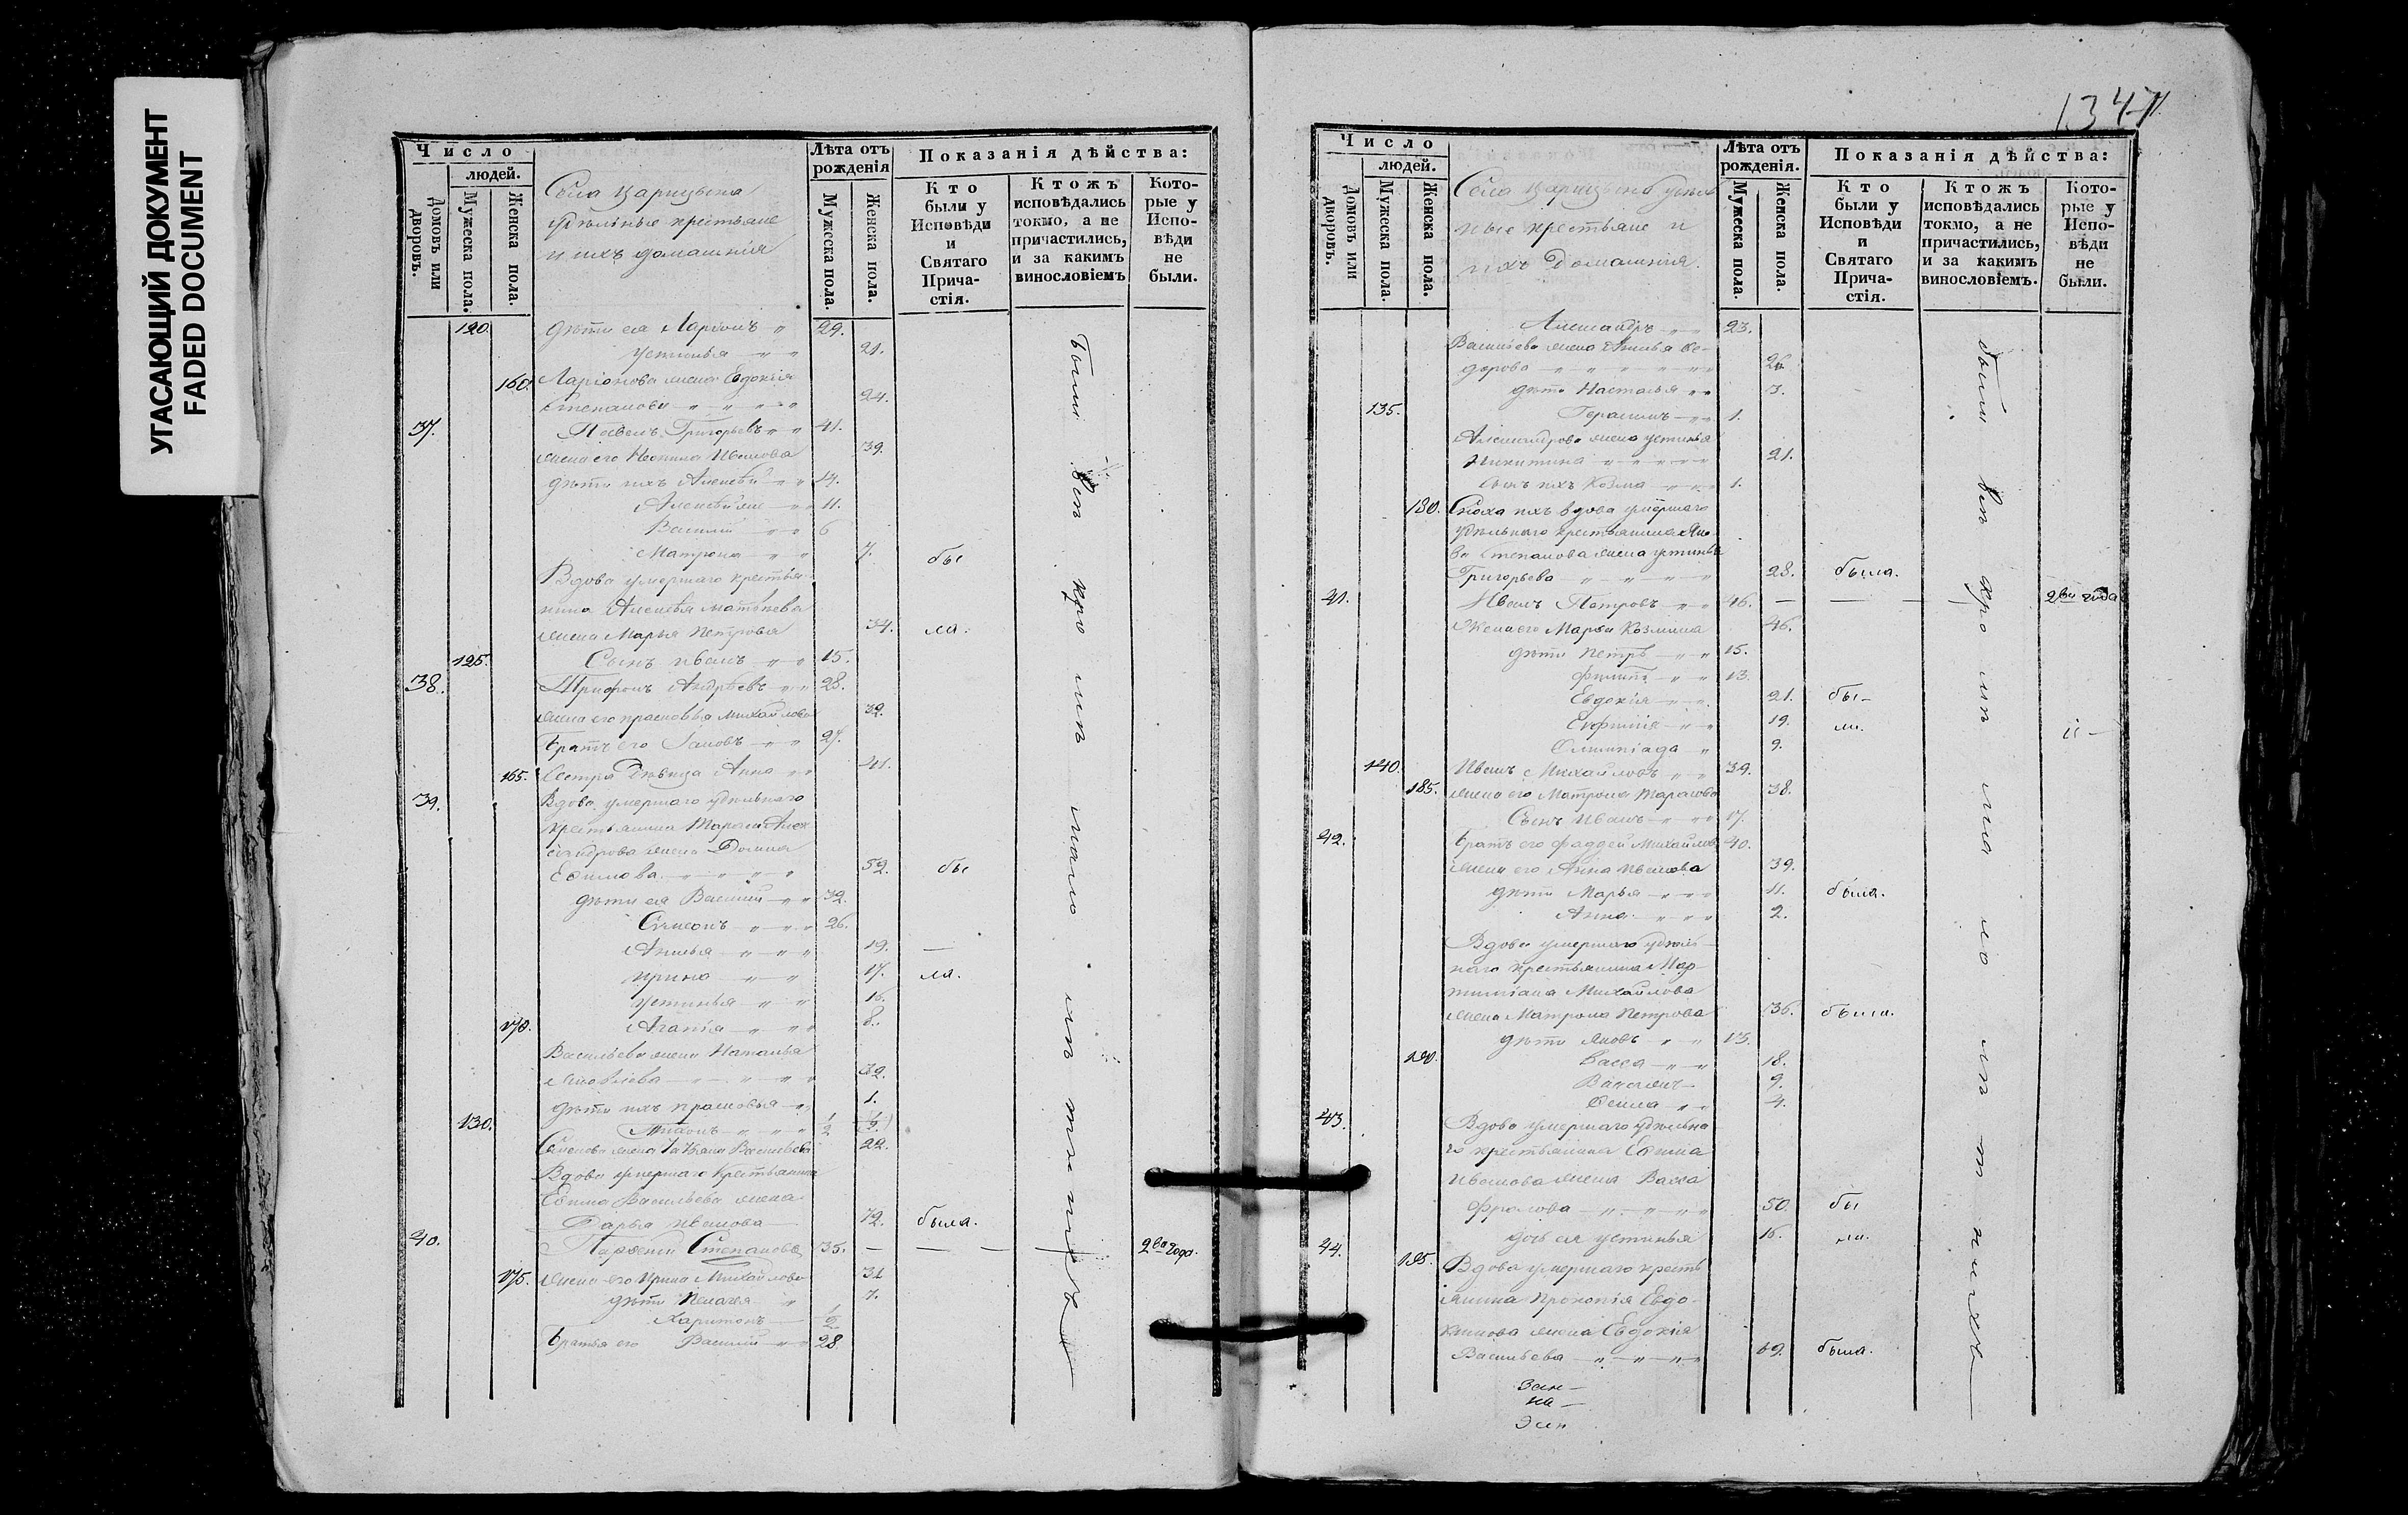 УГАСАЮЩИЙ ДОКУМЕНТ
FADED DOCUMENT
Число
людей.
Домовъ или дворовъ.
Мужеска пола.
Женска пола.
Села Царицына
удѣльные крестьяне
и ихъ домашнія
Лѣта отъ рожденія
Мужеска пола.
Женска пола.
Показанія дѣйства:
Кто были у Исповѣди и Святаго Прича- стія.
Ктожъ исповѣдались токмо, а не причастились, и за какимъ винословіемъ
Кото- рые у Испо- вѣди не были.
120. дѣти ея Ларіонъ 29.
Устинья 21.
160. Ларіонова жена Евдокія
Степанова 24.
37. Павелъ Григорьевъ 41.
жена его Ивановa 39.
дѣти ихъ Алексѣй 14.
11.
Василій 6
Матрона 7. бы
Вдова умершаго крестья-
нина Алексѣя Матвѣева
жена Марья Петрова 34. ла.
125. Сынъ Иванъ 15.
38. Трифонъ Андреевъ 28.
жена его Прасковья Михайлова 32.
Братъ его Іаковъ 27.
165. Сестра дѣвица Анна 41.
39. Вдова умершаго удѣльнаго
крестьянина Тараса Алек-
сандрова жена Домна
Ефимова 52. бы
дѣти ея Василій 32.
Симеонъ 26.
Акилина 19. —
Ирина 17. ла.
Устинья 16.
170. Агапія 8.
Васильева жена Наталья
Яковлева 32.
дѣти ихъ Прасковья 1.
130. 1/2
Семенова жена Татьяна Васильева 22.
Вдова умершаго крестьянина
Ефима Васильева жена
Дарья Иванова 72. была.
40. Парфеній Степановъ 35. — — — 2ва года.
175. жена его Ирина Михайлова 31
дѣти Пелагея 7.
Харитонъ 1/2
Братья его Василій 28
Были
1347
Число
людей.
Домовъ или дворовъ.
Мужеска пола.
Женска пола.
Села Царицына удѣль
ные крестьяне и
ихъ домашнія.
Лѣта отъ рожденія.
Мужеска пола.
Женска пола.
Показанія дѣйства:
Кто были у Исповѣди и Святаго Прича- стія.
Ктожъ исповѣдались токмо, а не причастились, и за какимъ винословіемъ.
Кото- рые у Испо- вѣди не были.
Александръ 23.
Васильева жена Ѳе-
дорова 26.
дѣти Настасья 3.
135. Герасимъ 1.
Александрова жена Устинья
Никитина 21.
Сынъ ихъ Козма 1.
180. Сноха ихъ вдова умершаго
удѣльнаго крестьянина Яко-
ва Степанова жена Устинья
Григорьева 28. была.
41. Иванъ Петровъ 46. — — — 2ва года
Жена его Марья Козмина 46.
дѣти Петръ 15.
Филиппъ 13.
Евдокія 21. бы-
Евфимія 19. ли.
Олимпіада 9.
140. Иванъ Михайловъ 39.
185. жена его Матрона Тарасова 38.
Сынъ Иванъ 17.
42. Братъ его Фаддей Михайловъ 40.
жена его Анна Иванова 39.
дѣти Марья 11. была.
Анна 2.
Вдова умершаго удѣль-
наго крестьянина Мар-
тиніана Михайлова
жена Матрона Петрова 36. была.
дѣти Яковъ 13.
190 Васса 18.
9.
4.
43. Вдова умершаго удѣльна
го крестьянина Ефима
Иванова жена Васса
Фролова 50. бы
дочь ея Устинья 16. ла.
44. 195. Вдова умершаго кресть
янина Прокопія Евдо-
кимова жена Евдокія
Васильева 69. была.
были